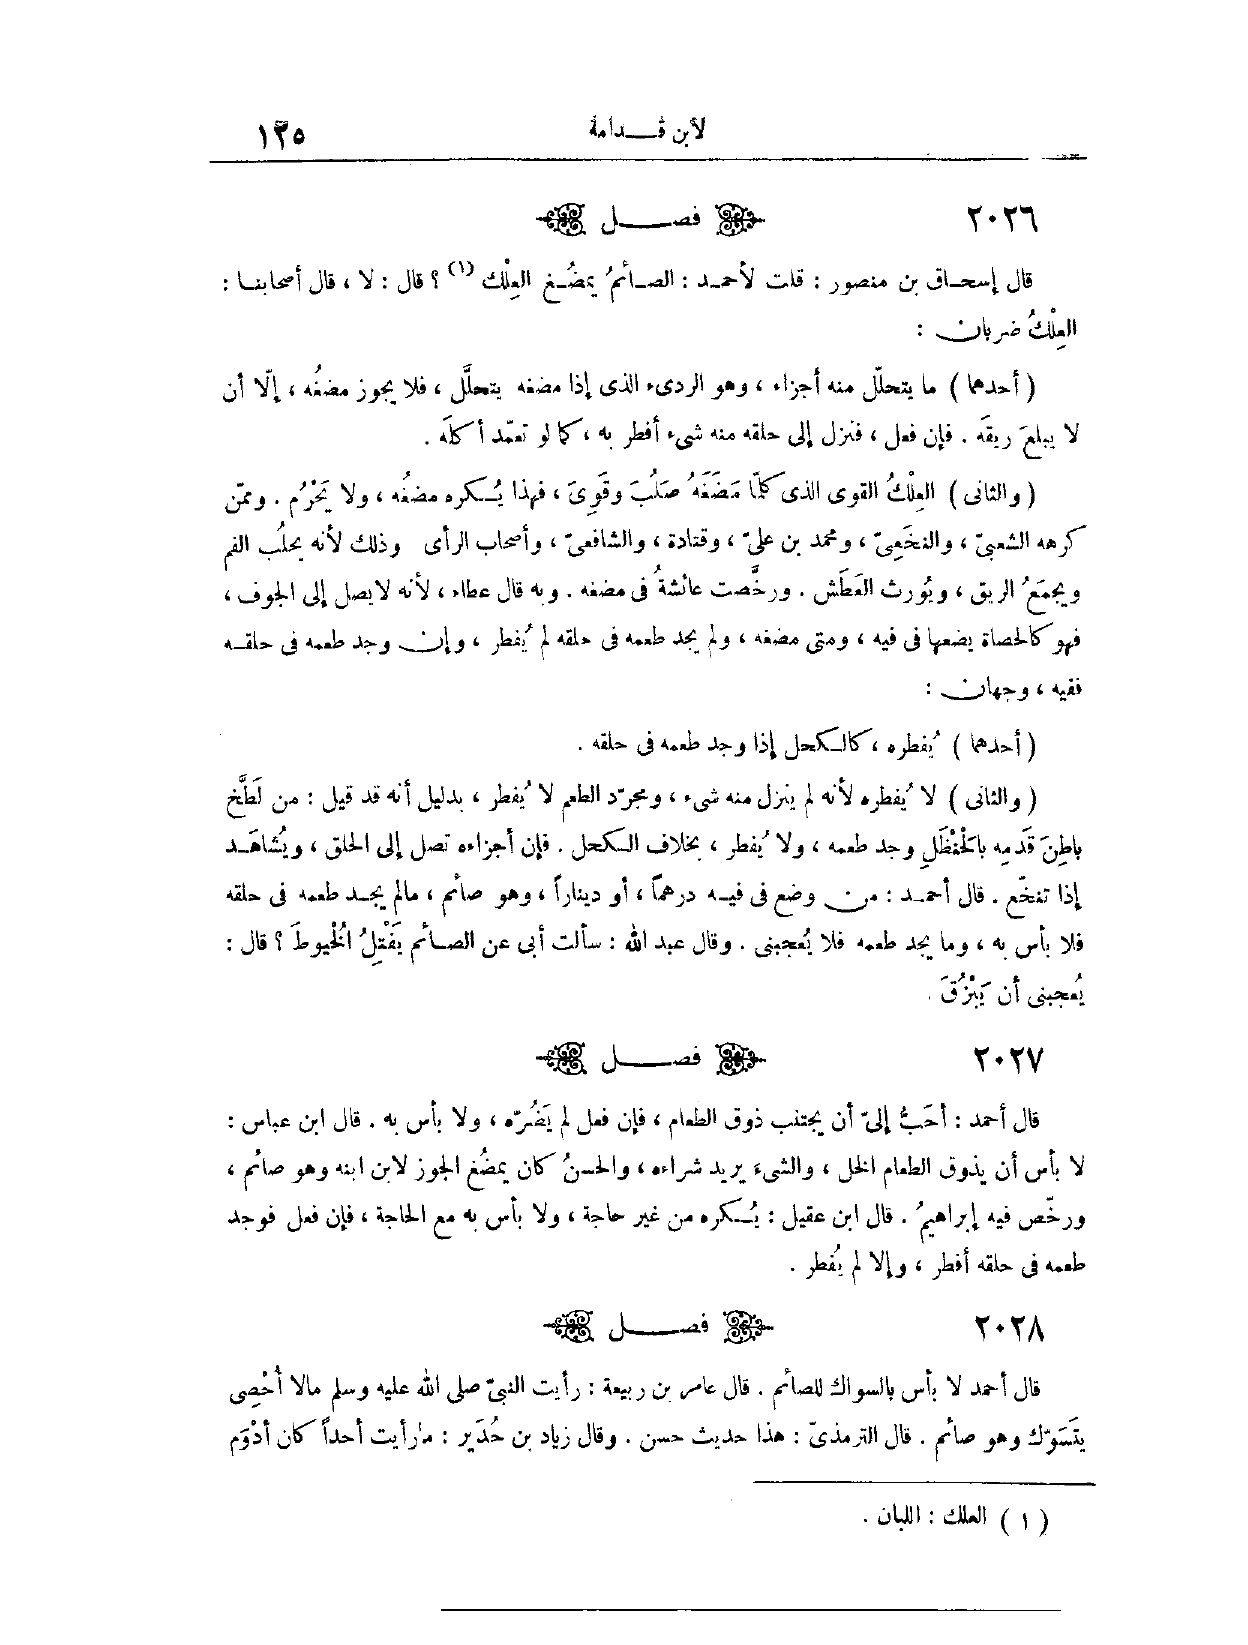 لابن قدامة ١٢٥
٢٠٢٦ فصل
قال إسحاق بن منصور : قلت لأحمد : الصائمُ يمضُغ العِلْك (١) ؟ قال : لا ، قال أصحابنا :
العِلْكُ ضربان :
( أحدهما ) ما يتحلّل منه أجزاء ، وهو الردىء الذى إذا مضغه يتحلَّل ، فلا يجوز مضغُه ، إلّا أن
لا يبلعَ ريقَه . فإن فعل ، فنزل إلى حلقه منه شىء أفطر به ، كما لو تعمّد أكلَه .
( والثانى ) العِلْكُ القوى الذى كلّما مَضَغَهُ صَلُبَ وقَوِىَ ، فهذا يُكره مضغُه ، ولا يَحْرُم . وممّن
كرهه الشعبىّ ، والنخَعِىّ ، ومحمد بن علىّ ، وقتادة ، والشافعىّ ، وأصحاب الرأى وذلك لأنه يحلُب الفم
ويجمَعُ الريق ، ويُورث العَطَش . ورخَّصت عائشةُ فى مضغه . وبه قال عطاء ، لأنه لايصل إلى الجوف ،
فهو كالحصاة يضعها فى فيه ، ومتى مضغه ، ولم يجد طعمه فى حلقه لم يُفطر ، وإن وجد طعمه فى حلقه
ففيه ، وجهان :
( أحدهما ) يُفطره ، كالكحل إذا وجد طعمه فى حلقه .
( والثانى ) لا يُفطره لأنه لم ينزل منه شىء ، ومجرّد الطعم لا يُفطر ، بدليل أنه قد قيل : من لَطَّخ
باطِنَ قدَمِه بالحَنْظَلِ وجد طعمه ، ولا يُفطر ، بخلاف الكحل . فإن أجزاءه تصل إلى الحلق ، ويُشاهَد
إذا تنخّع . قال أحمد : من وضع فى فيه درهماً ، أو ديناراً ، وهو صائم ، مالم يجد طعمه فى حلقه
فلا بأس به ، وما يجد طعمه فلا يُعجبنى . وقال عبد الله : سألت أبى عن الصائم يَفْتِلُ الْخُيوطَ ؟ قال :
يُعجبنى أن يَبْزُقَ .
٢٠٢٧ فصل
قال أحمد : أحَبُّ إلىّ أن يجتنب ذوق الطعام ، فإن فعل لم يَضُرّه ، ولا بأس به . قال ابن عباس :
لا بأس أن يذوق الطعام الخل ، والشىء يريد شراءه ، والحسنُ كان يمضُغ الجوز لابن ابنه وهو صائم ،
ورخّص فيه إبراهيمُ . قال ابن عقيل : يُكره من غير حاجة ، ولا بأس به مع الحاجة ، فإن فعل فوجد
طعمه فى حلقه أفطر ، وإلا لم يُفطر .
٢٠٢٨ فصل
قال أحمد لا بأس بالسواك للصائم . قال عامر بن ربيعة : رأيت النبىّ صلى الله عليه وسلم مالا أُحْصِى
يتَسَوّك وهو صائم . قال الترمذىّ : هذا حديث حسن . وقال زياد بن حُدَير : ما رأيت أحداً كان أدْوَم
( ١ ) العلك : اللبان .